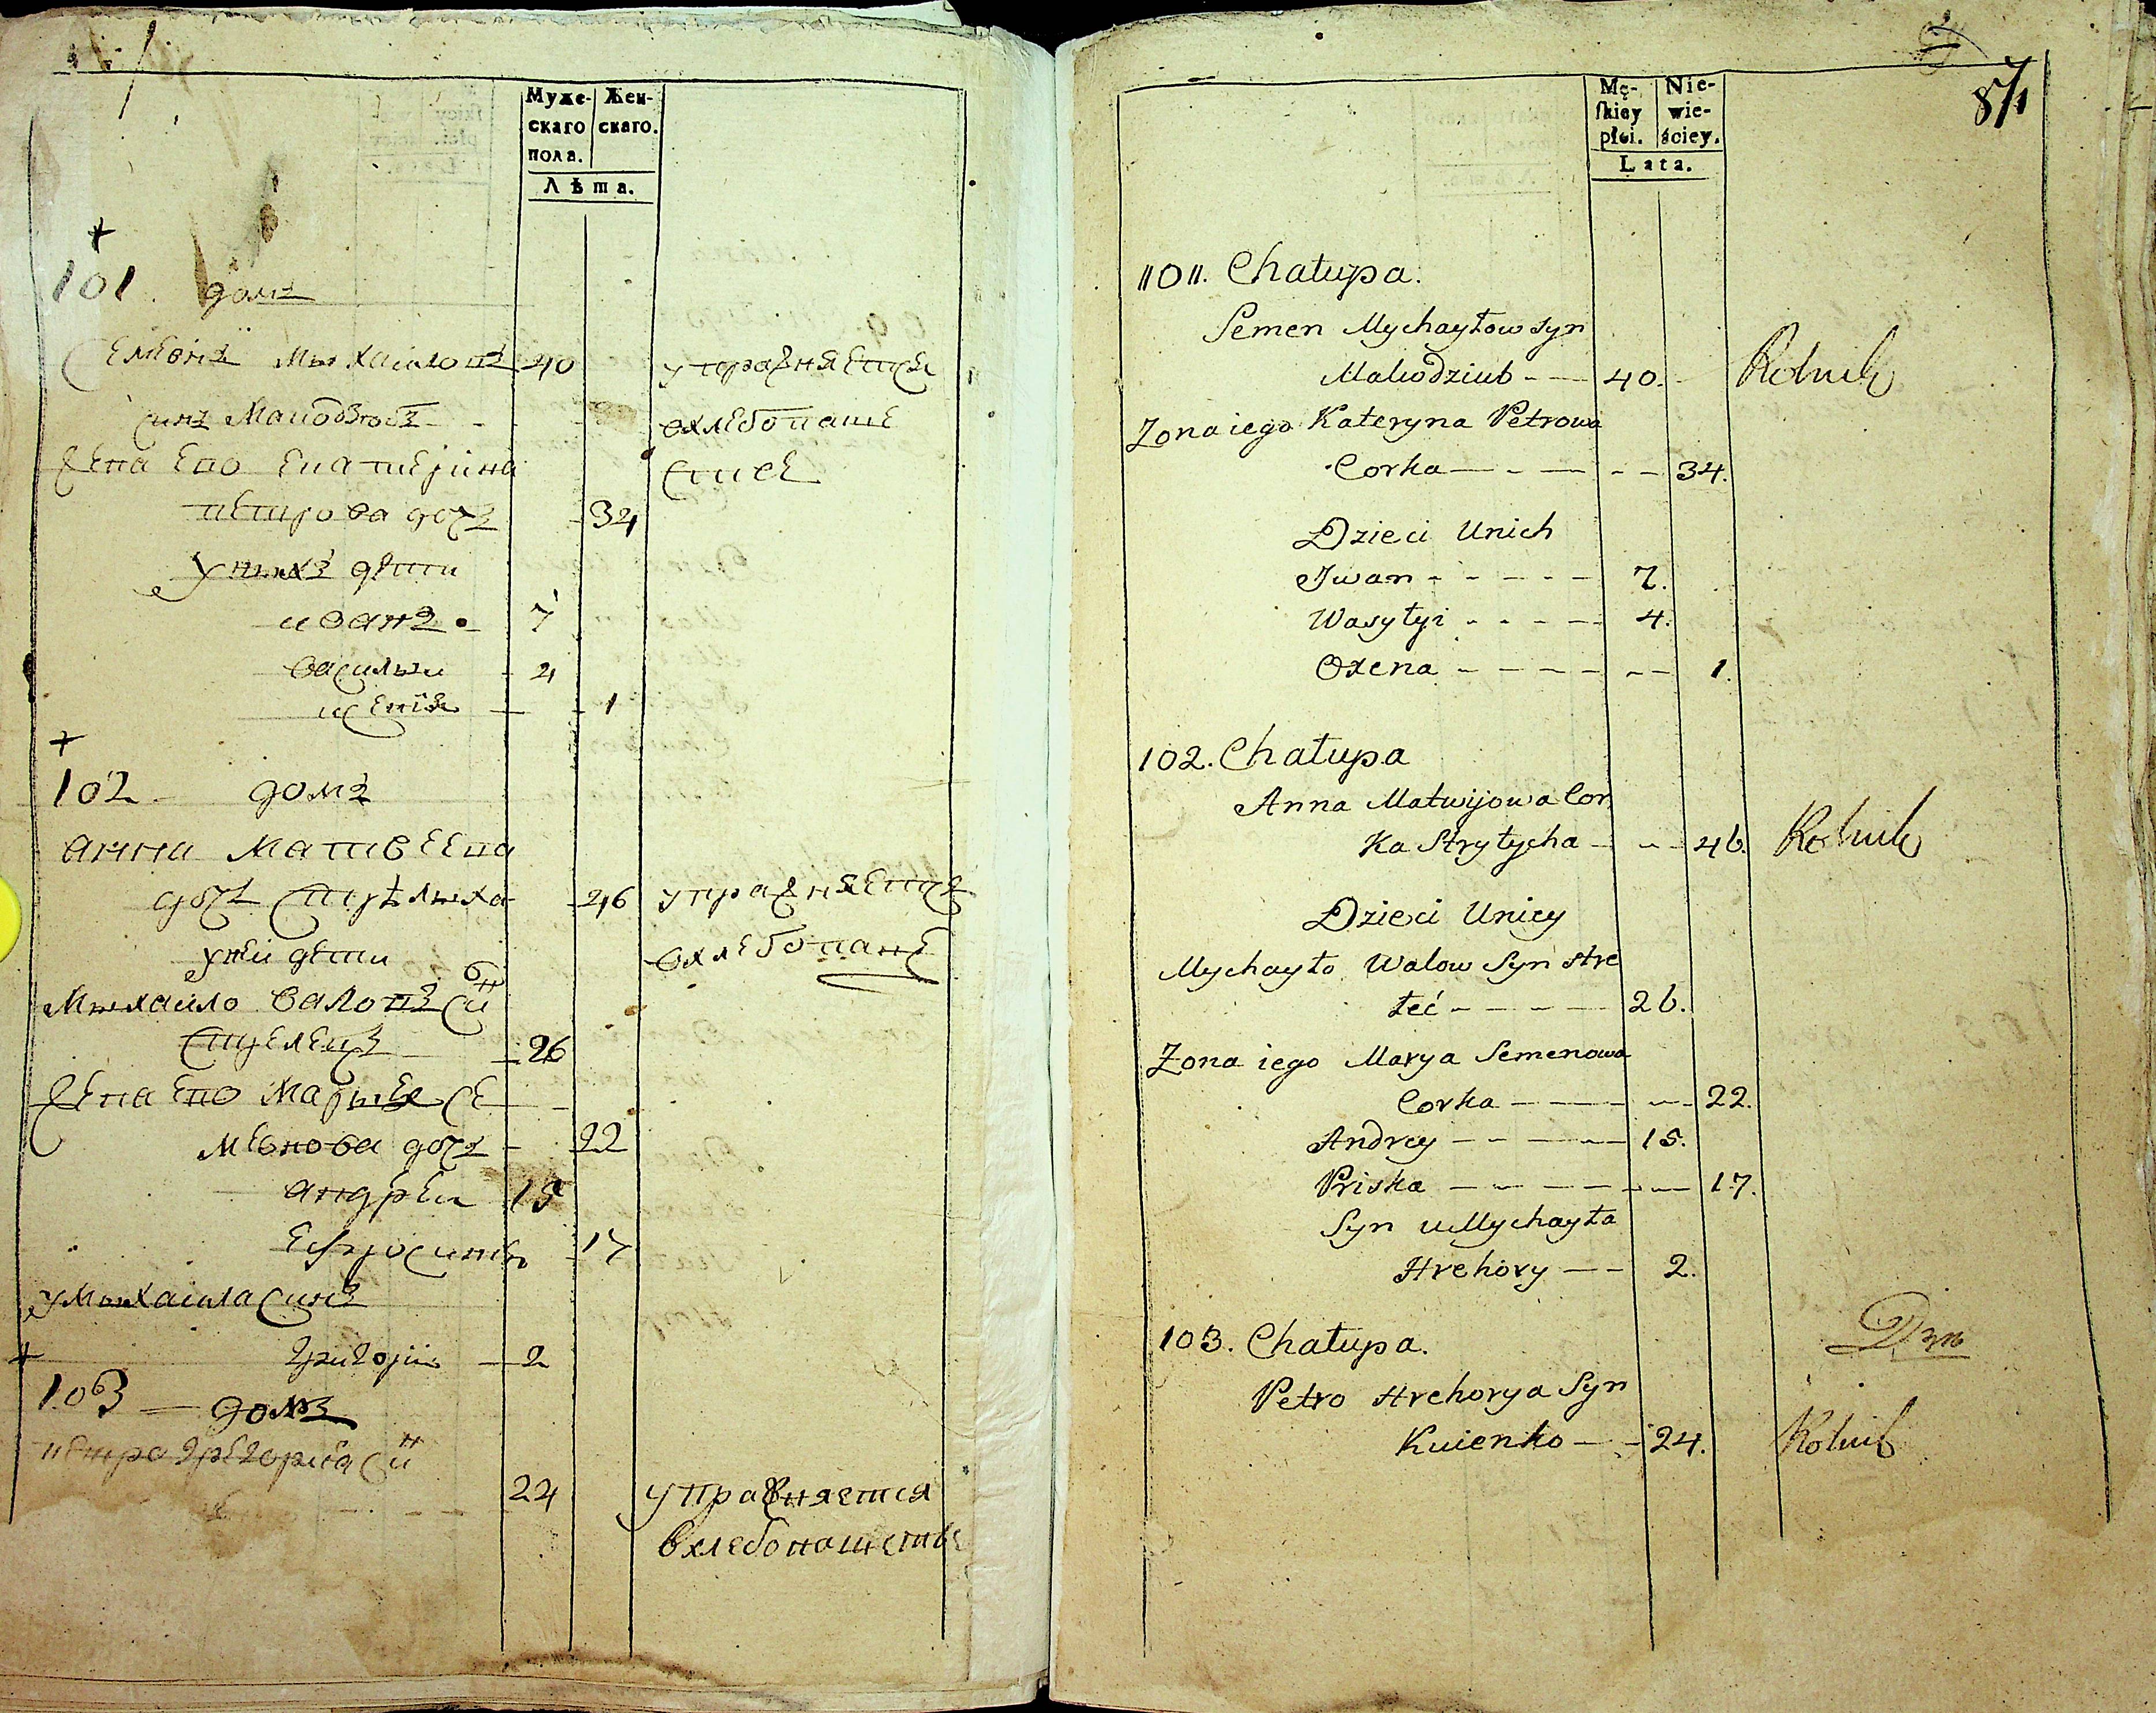 Муже-
скаго
пола.
Жен-
скаго.
Лѣта.
101. домъ
Семенъ Мыхаиловъ 40 упражняется
синъ Макодзюбъ вхлебопаше
жена его Екатерина стве
петрова дочъ 34
у ныхъ дети
иванъ 7
василыи 4
ксения 1
102 домъ
анна Матвеева
дочъ стрѣлыха 46 упражняется
у неи дети вхлебопаше
Мыхаило Валовъ си
стрелецъ 26
жена его Марыя Се
менова дочъ 22
андреи 15
Ефросиния 17
у Мыхаила синъ
григории 2
103 домъ
петро григория си
24 упражняется
вхлебопашестве
8/1
Mę-
skiey
płci.
Nie-
wie-
ściey.
Lata.
101. Chałupa.
Semen Mychayłow syn
Makodziub 40. Rolnik
Zona iego Kateryna Petrowa
Corka 34.
Dzieci Unich
Jwan 7.
Wasylyi 4.
Oxena 1.
102. Chałupa
Anna Matwijowa Cor
ka Strytycha 46. Rolnik
Dzieci Uniey
Mychayło Walow Syn stre
łeć 26.
Zona iego Marya Semenowa
Corka 22.
Andrey 15.
Priska 17.
Syn uMychayła
Hrehory 2.
103. Chałupa.
Petro Hrehorya Syn
Kuienko 24. Rolnik